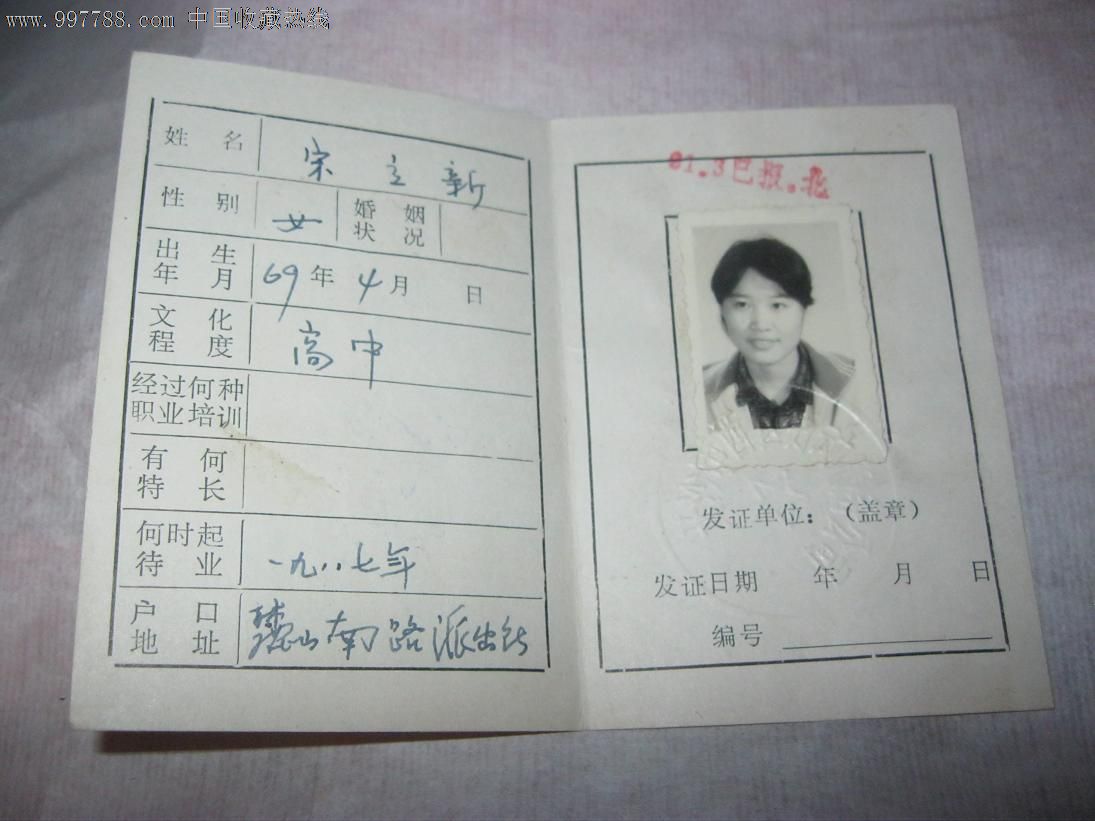 www.997788.com 中国收藏热线
姓名 宋立新
性别 女 婚姻状况
出生年月 69年4月 日
文化程度 高中
经过何种职业培训
有何特长
何时起待业 一九八七年
户口地址 麓山南路派出所
91.3已报.北
发证单位：（盖章）
发证日期 年 月 日
编号